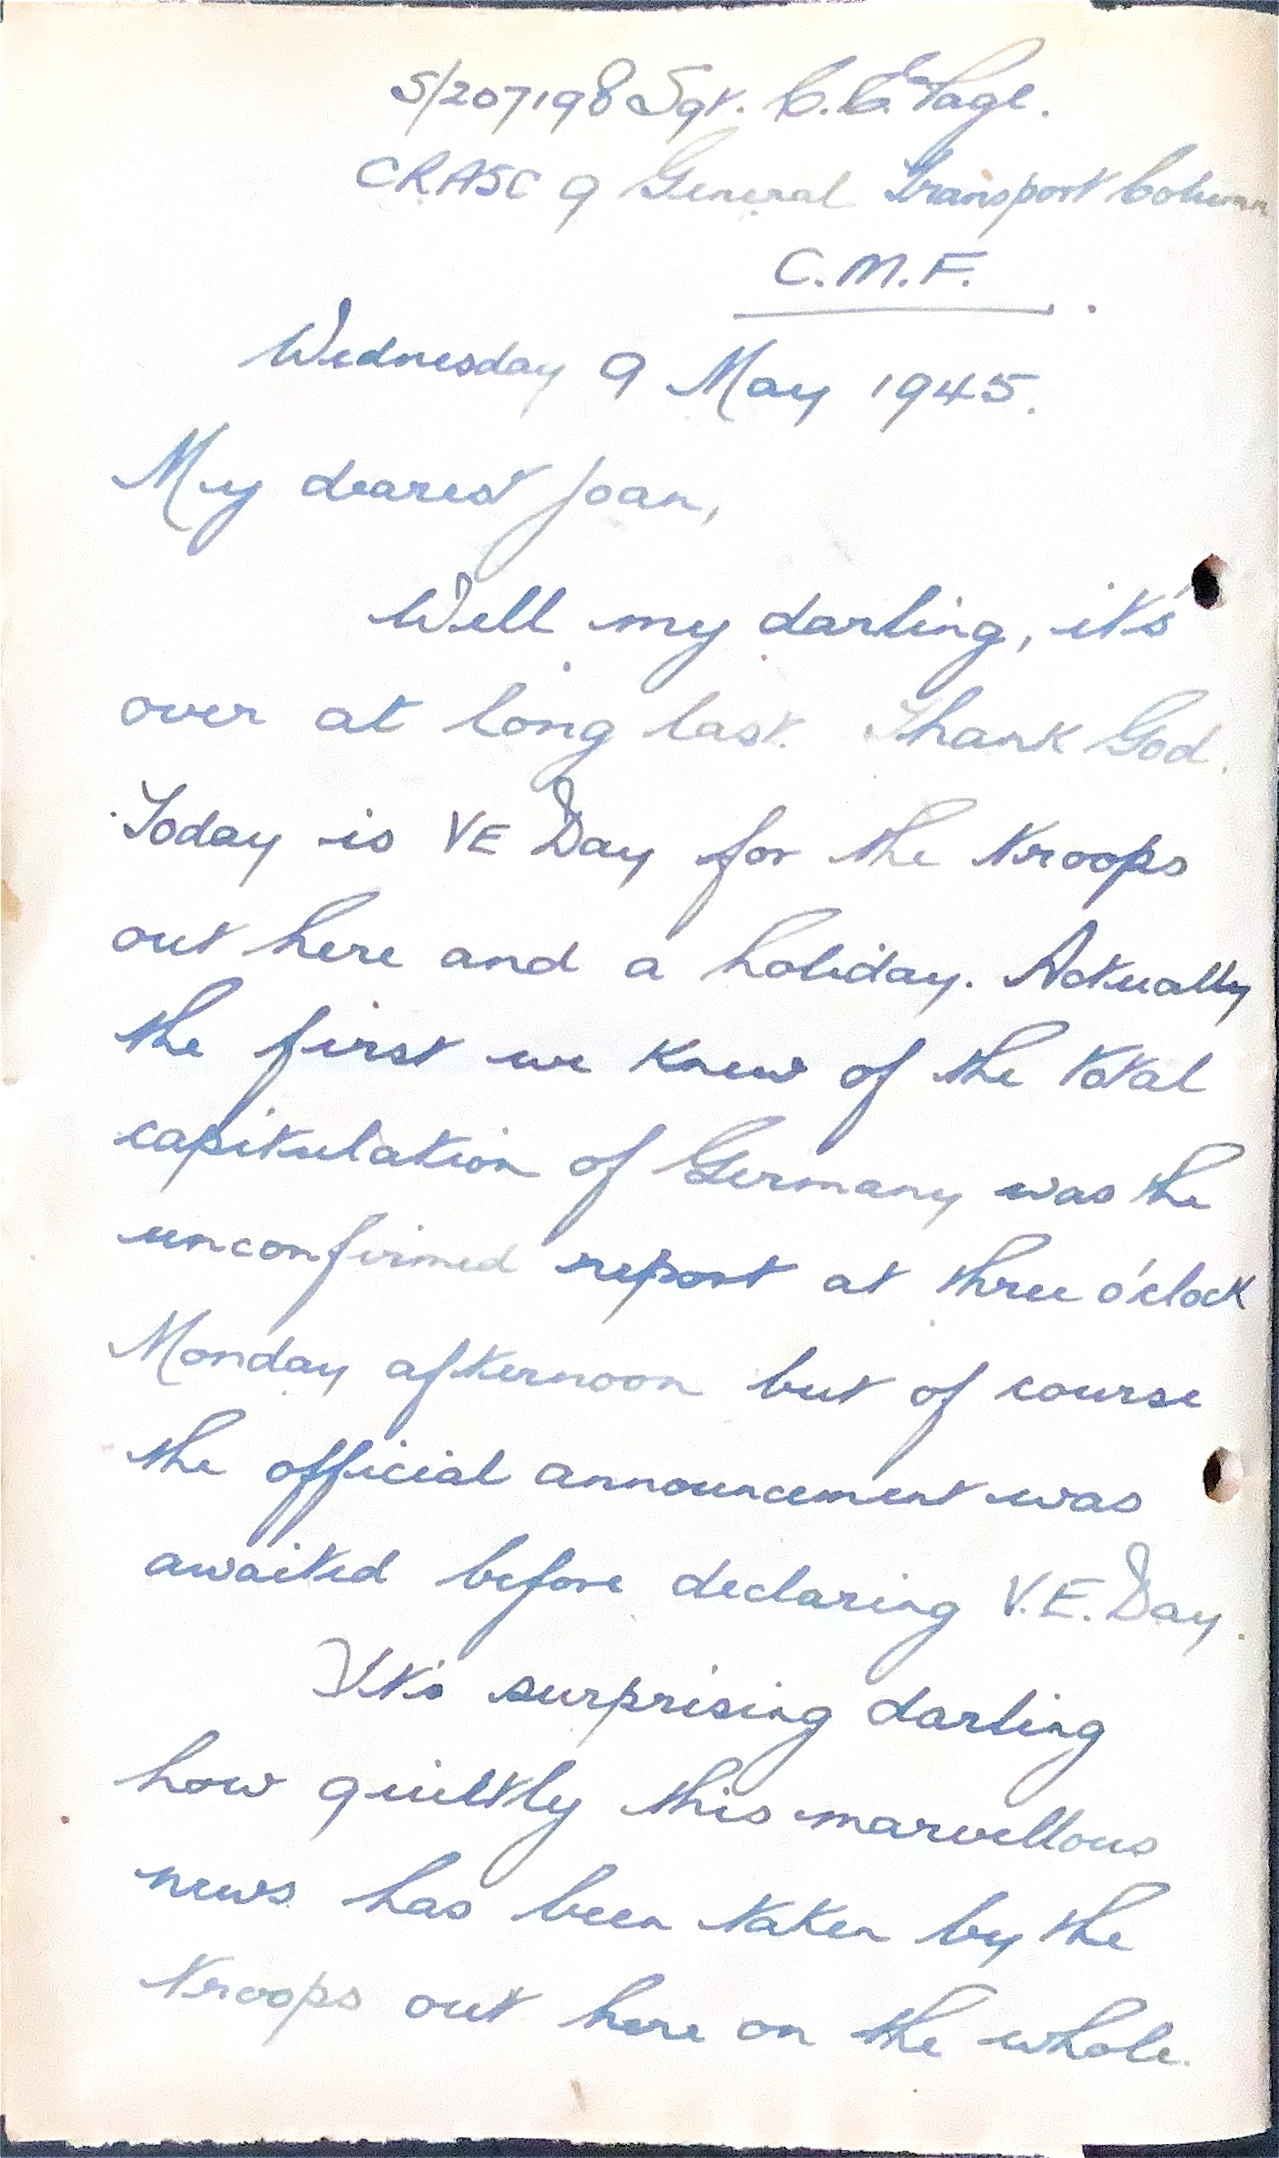 S/207198 Sgt. C. C. Page.
CRASC 9 General Transport Column
C.M.F.
Wednesday 9 May 1945.
My dearest Joan,
Well my darling, it's
over at long last. Thank God.
Today is VE Day for the troops
out here and a holiday. Actually
the first we knew of the total
capitulation of Germany was the
unconfirmed report at three o'clock
Monday afternoon but of course
the official announcement was
awaited before declaring V.E. Day.
It's surprising darling
how quietly this marvellous
news has been taken by the
troops out here on the whole.